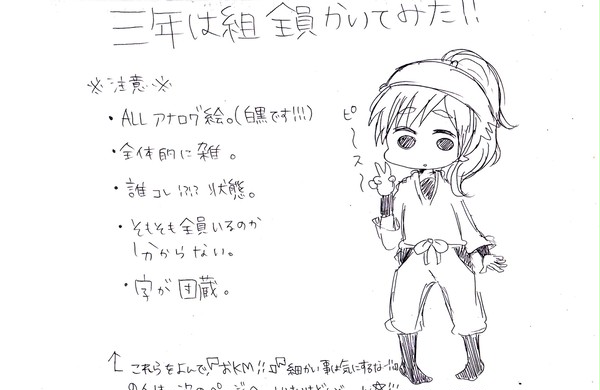 三年は組 全員かいてみた!!
※注意※
・ALL アナログ絵。(白黒です!!!)
・全体的に雑。
・誰コレ!?!? 状態。
・そもそも全員いるのか
分からない。
・字が団蔵。
ピースー
↑ これらをよんで、「おKM!!」「細かい事は気にするな!!